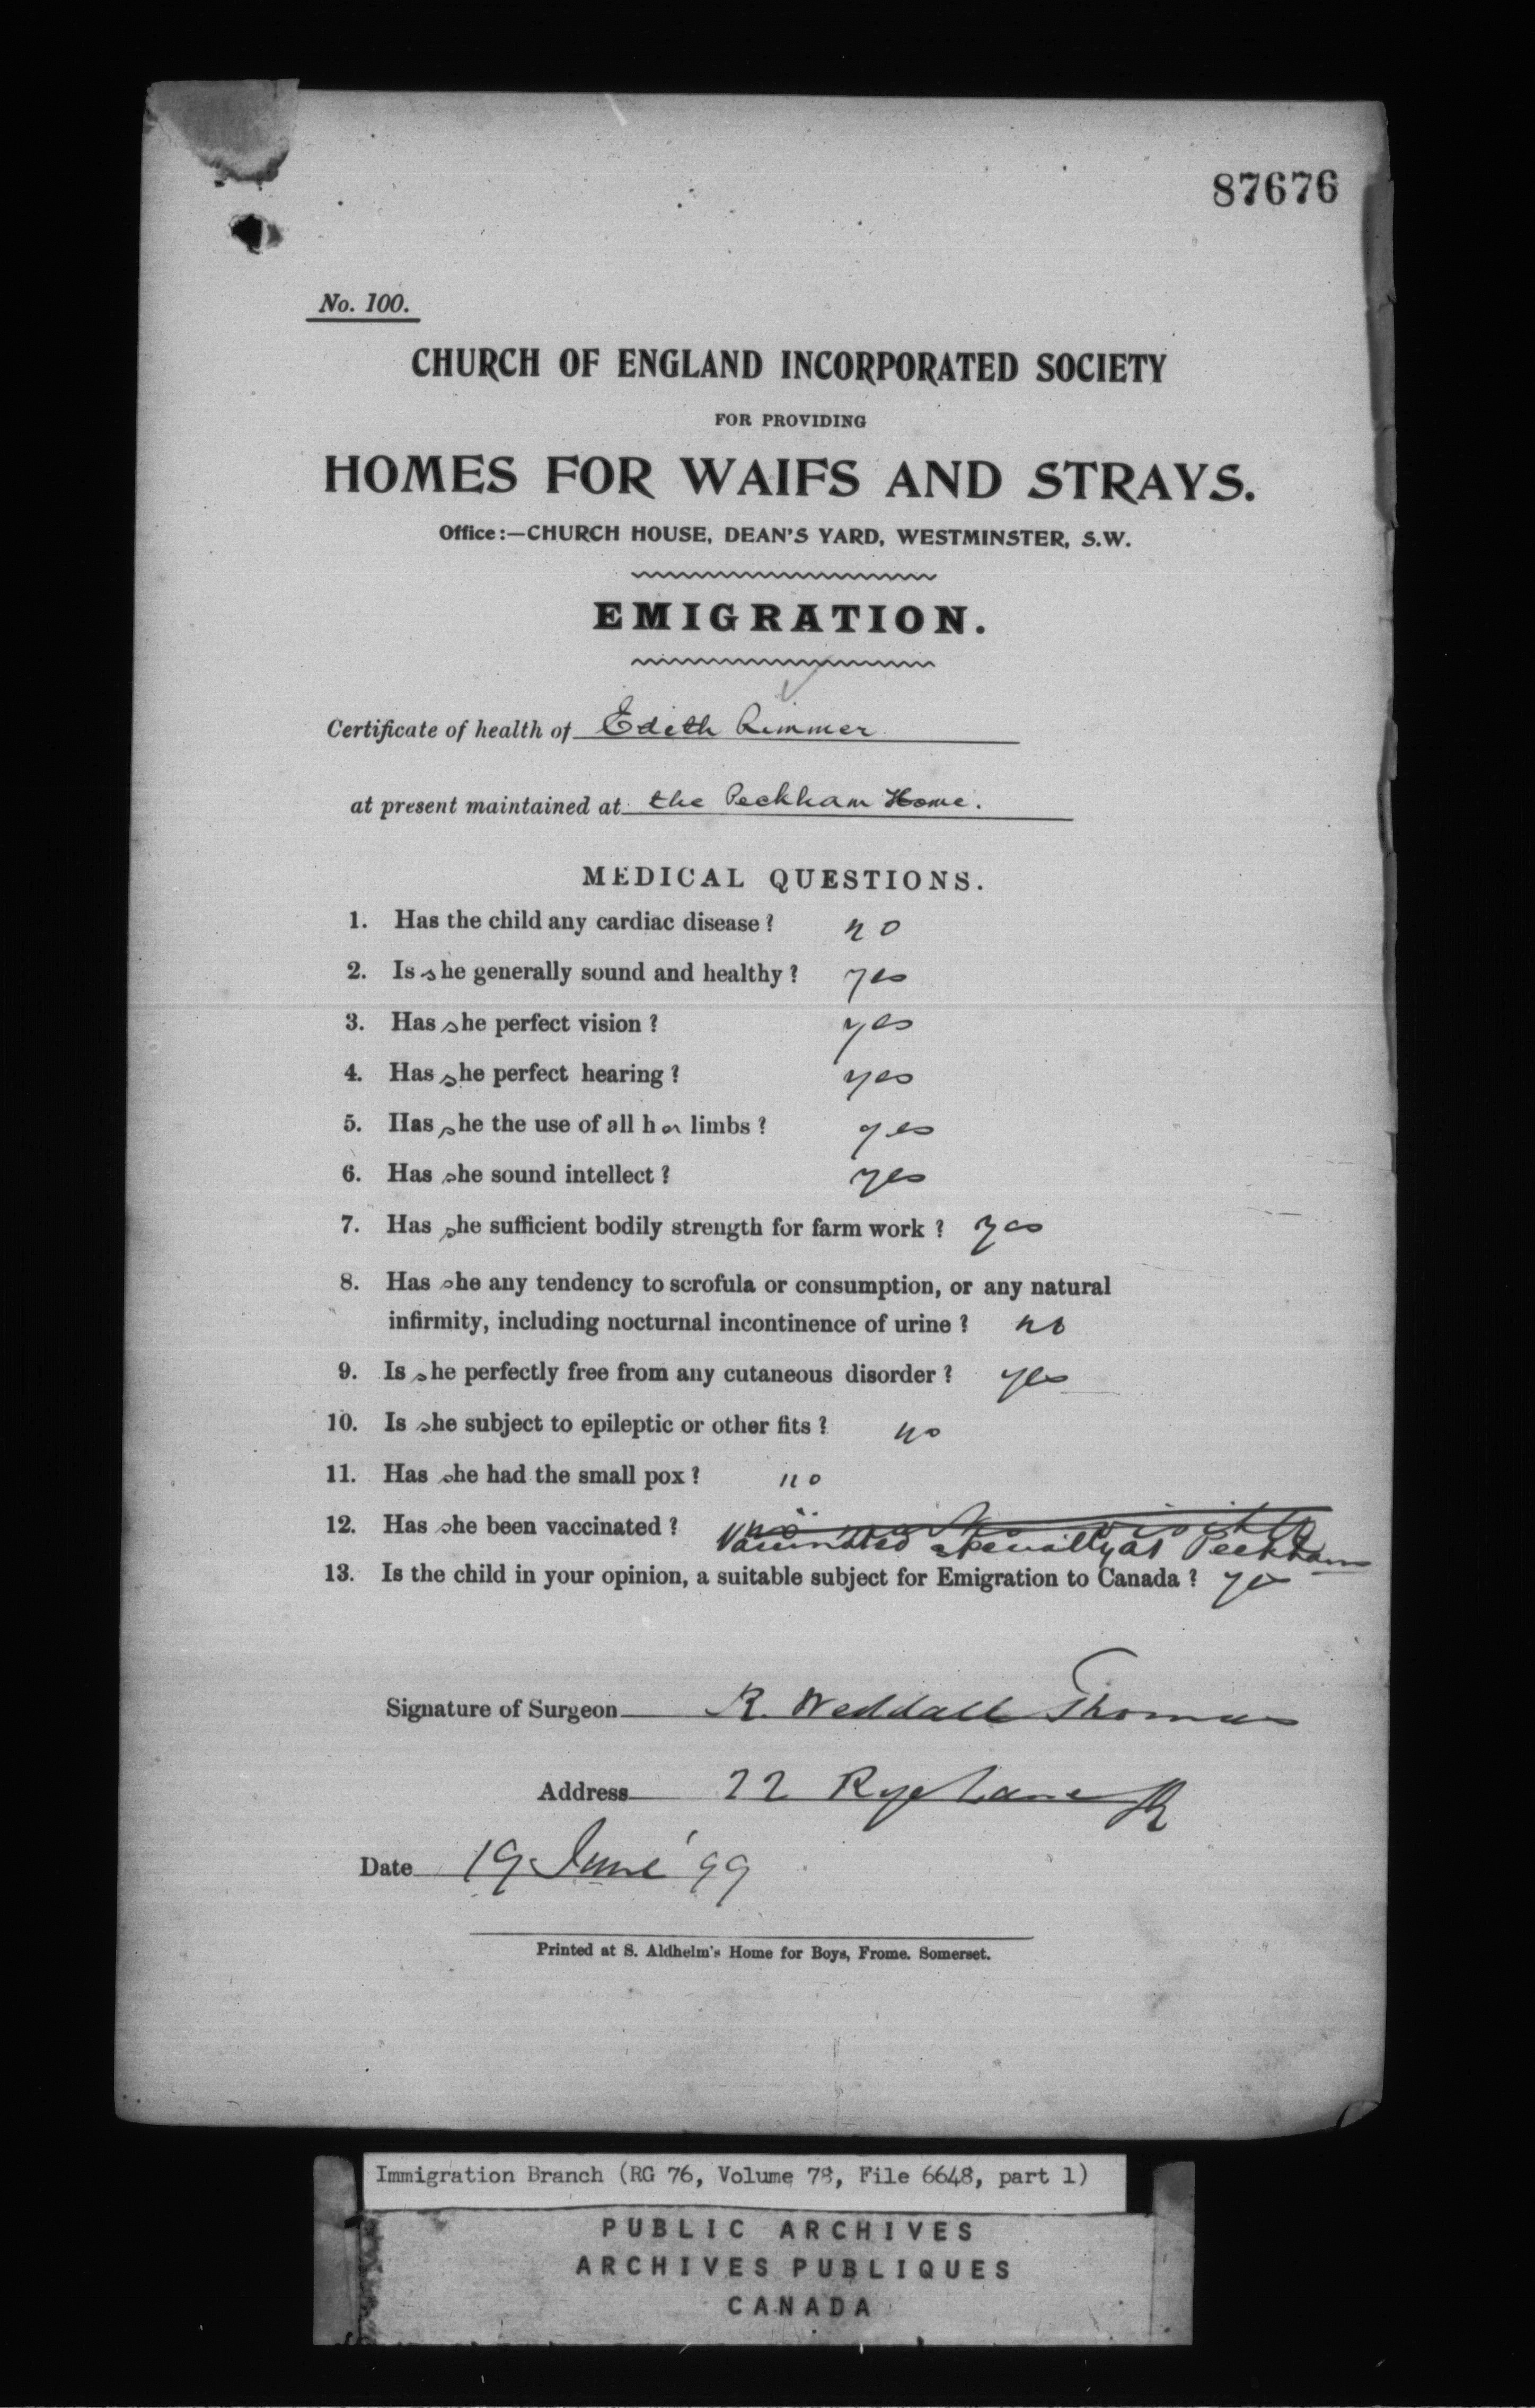 87676
No. 100.
CHURCH OF ENGLAND INCORPORATED SOCIETY
FOR PROVIDING
HOMES FOR WAIFS AND STRAYS.
Office:—CHURCH HOUSE, DEAN'S YARD, WESTMINSTER, S.W.
EMIGRATION.
Certificate of health of Edith Rimmer
at present maintained at the Peckham Home.
MEDICAL QUESTIONS.
1. Has the child any cardiac disease? no
2. Is she generally sound and healthy? yes
3. Has she perfect vision? yes
4. Has she perfect hearing? yes
5. Has she the use of all her limbs? yes
6. Has she sound intellect? yes
7. Has she sufficient bodily strength for farm work? yes
8. Has she any tendency to scrofula or consumption, or any natural
infirmity, including nocturnal incontinence of urine? no
9. Is she perfectly free from any cutaneous disorder? yes
10. Is she subject to epileptic or other fits? no
11. Has she had the small pox? no
12. Has she been vaccinated?
Vaccinated specially at Peckham
13. Is the child in your opinion, a suitable subject for Emigration to Canada? yes
Signature of Surgeon R. Weddall Thomas
Address 22 Rye Lane
Date 19 June '99
Printed at S. Aldhelm's Home for Boys, Frome. Somerset.
Immigration Branch (RG 76, Volume 78, File 6648, part 1)
PUBLIC ARCHIVES
ARCHIVES PUBLIQUES
CANADA